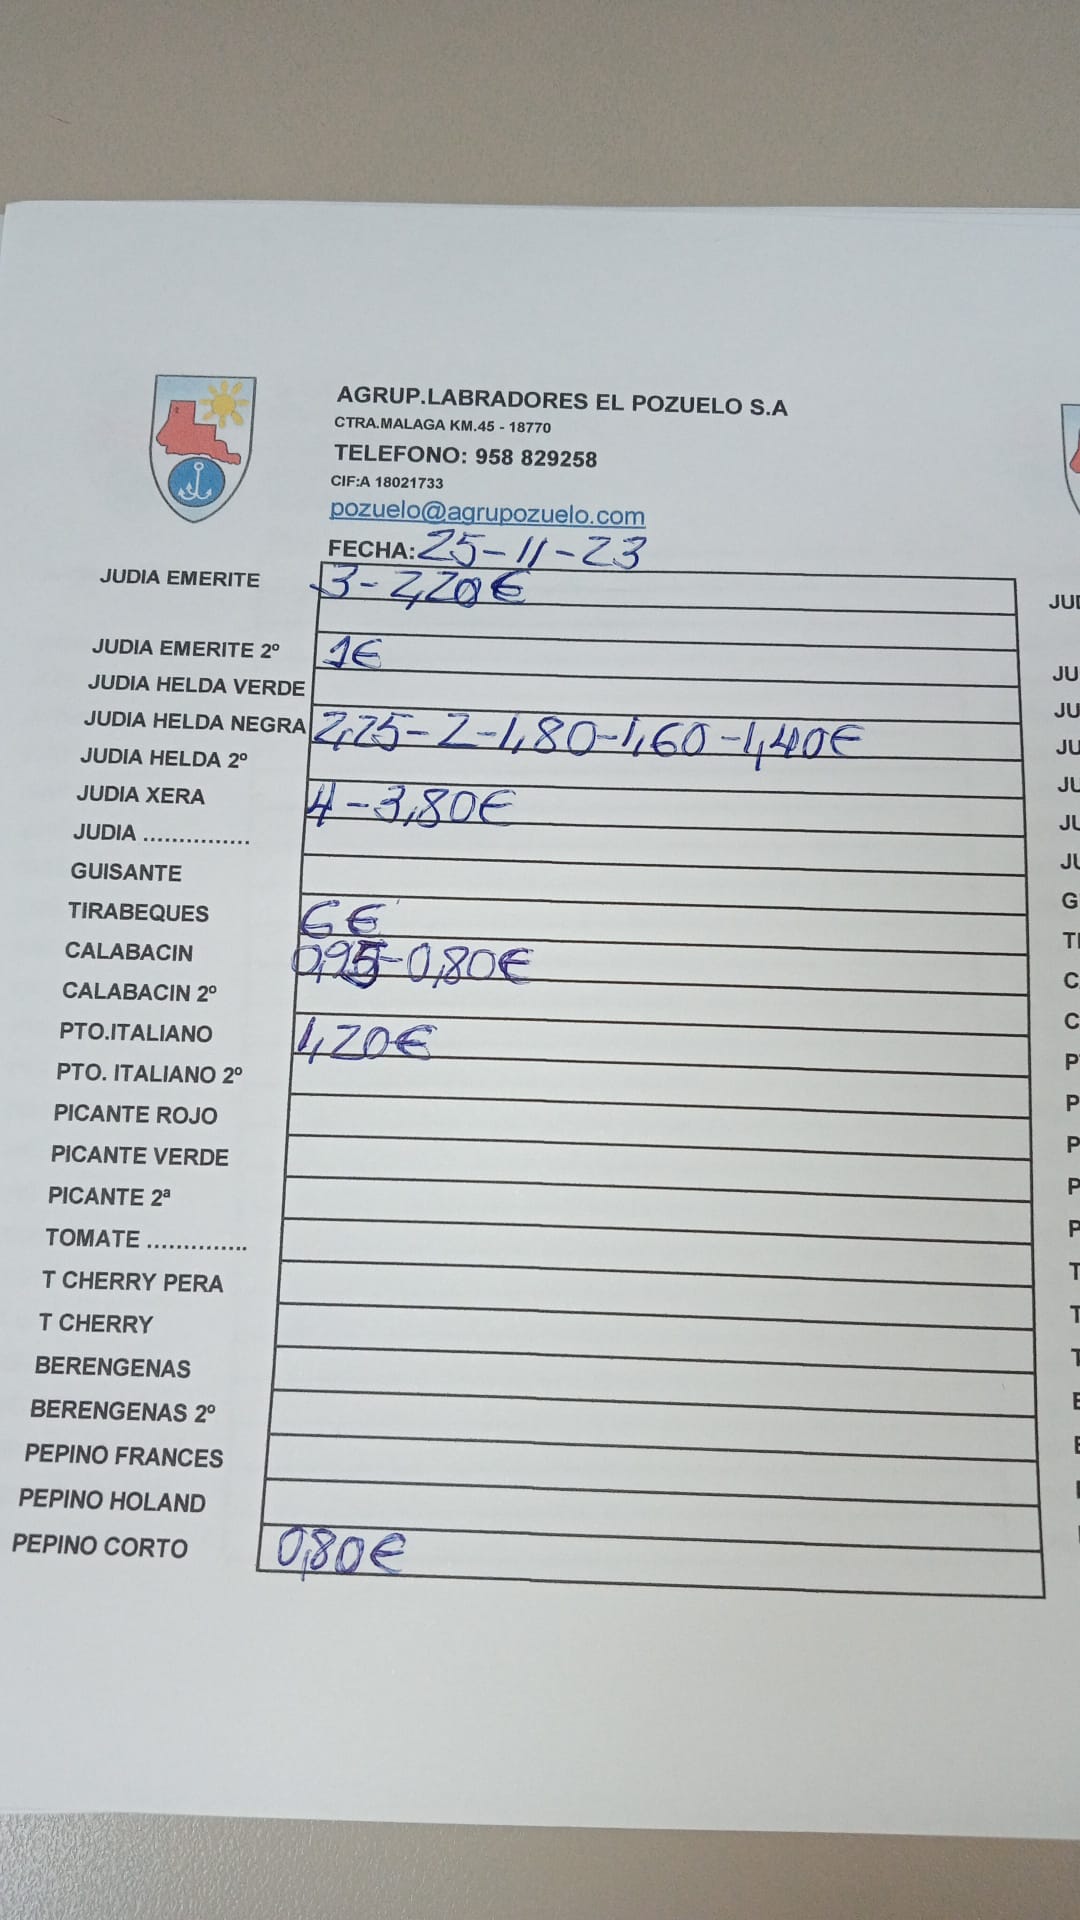 AGRUP.LABRADORES EL POZUELO S.A
CTRA.MALAGA KM.45 - 18770
TELEFONO: 958 829258
CIF:A 18021733
pozuelo@agrupozuelo.com
FECHA: 25-11-23
JUDIA EMERITE 3-2,20€
JUDIA EMERITE 2º 1€
JUDIA HELDA VERDE
JUDIA HELDA NEGRA 2,25-2-1,80-1,60-1,40€
JUDIA HELDA 2º
JUDIA XERA 4-3,80€
JUDIA ...............
GUISANTE
TIRABEQUES 6€
CALABACIN 0,95-0,80€
CALABACIN 2º
PTO.ITALIANO 1,20€
PTO. ITALIANO 2º
PICANTE ROJO
PICANTE VERDE
PICANTE 2ª
TOMATE ..............
T CHERRY PERA
T CHERRY
BERENGENAS
BERENGENAS 2º
PEPINO FRANCES
PEPINO HOLAND
PEPINO CORTO 0,80€